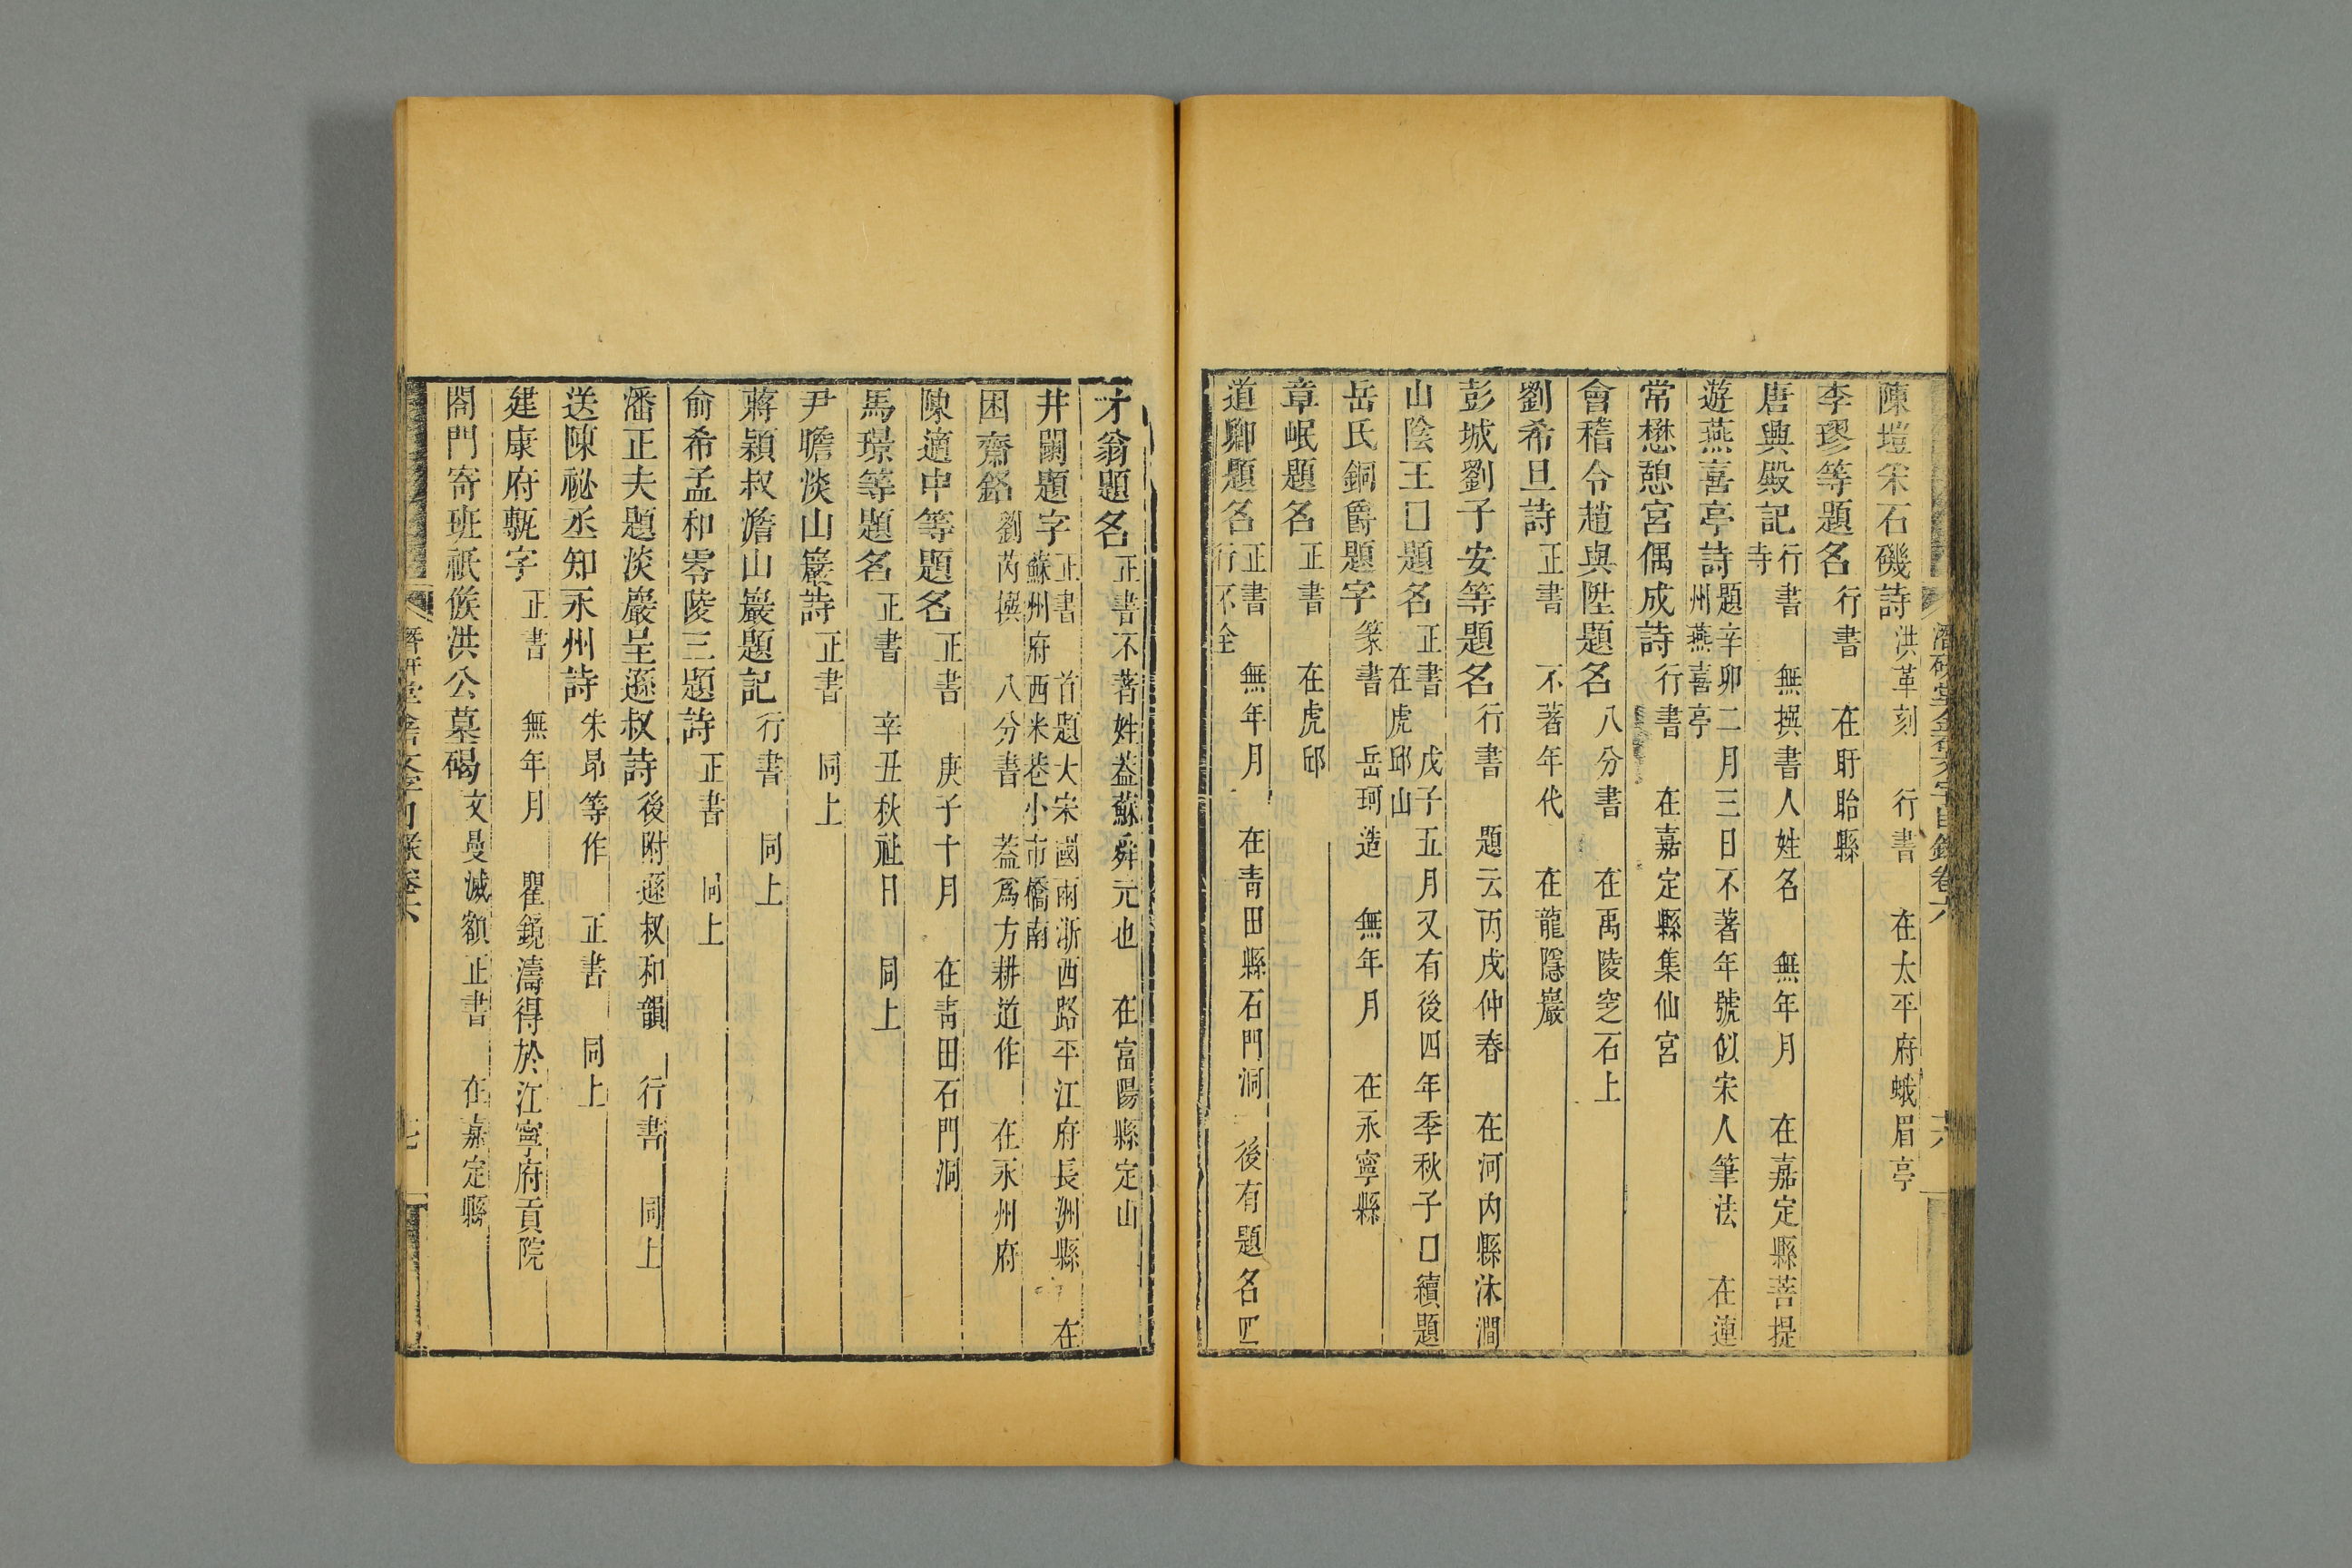 潛研堂金石文字目錄卷六 六
陳塏宋石磯詩 洪革刻 行書 在太平府蛾眉亭
李璆等題名 行書 在盱眙縣
唐興殿記 行書 無撰書人姓名 無年月 在嘉定縣菩提寺
遊燕喜亭詩 題辛卯二月三日不著年號似宋人筆法 在連州燕喜亭
常懋憩宮偶成詩 行書 在嘉定縣集仙宮
會稽令趙與陞題名 八分書 在禹陵窆石上
劉希旦詩 正書 不著年代 在龍隱巖
彭城劉子安等題名 行書 題云丙戌仲春 在河內縣沐澗
山陰王囗題名 正書 戊子五月又有後四年季秋子囗續題 在虎邱山
岳氏銅爵題字 篆書 岳珂造 無年月 在永寧縣
章岷題名 正書 在虎邱
道卿題名 正書 無年月 在青田縣石門洞 後有題名四行不全
才翁題名 正書不著姓葢蘇舜元也 在富陽縣定山
井闌題字 正書 首題大宋國兩浙西路平江府長洲縣 在蘇州府西米巷小市橋南
困齋銘 劉芮撰 八分書 葢爲方耕道作 在永州府
陳適中等題名 正書 庚子十月 在青田石門洞
馬璟等題名 正書 辛丑秋社日 同上
尹瞻淡山巖詩 正書 同上
蔣穎叔澹山巖題記 行書 同上
俞希孟和零陵三題詩 正書 同上
潘正夫題淡巖呈遜叔詩 後附遜叔和韻 行書 同上
送陳祕丞知永州詩 朱昂等作 正書 同上
建康府甎字 正書 無年月 瞿鏡濤得於江寧府貢院
閤門寄班祗候洪公墓碣 文曼滅額正書 在嘉定縣
潛研堂金石文字目錄卷六 七